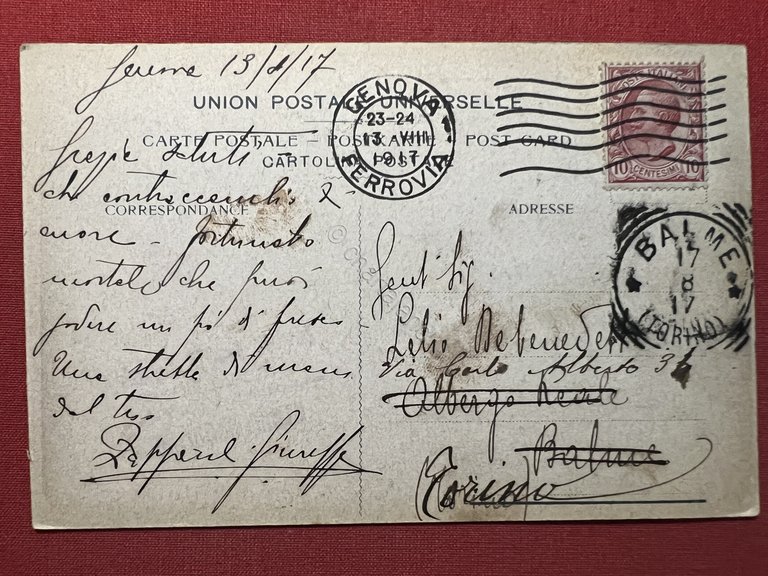 Genova 13/8/17
UNION POSTALE UNIVERSELLE
CARTE POSTALE - POSTKARTE - POST CARD
CARTOLINA POSTALE
CORRESPONDANCE
ADRESSE
GENOVA
23-24
13·VIII
1917
FERROVIA
POSTE ITALIANE
10 CENTESIMI 10
BALME
17
8
17
(TORINO)
Grazie
che
more - fortunato
mortale che puoi
godere un pò di fresco
Una stretta di mano
dal tuo
Giuseppe
Gent Sig.
Lelio Debenedetti
Via Carlo Alberto 36
Albergo Reale
Balme
(Torino)